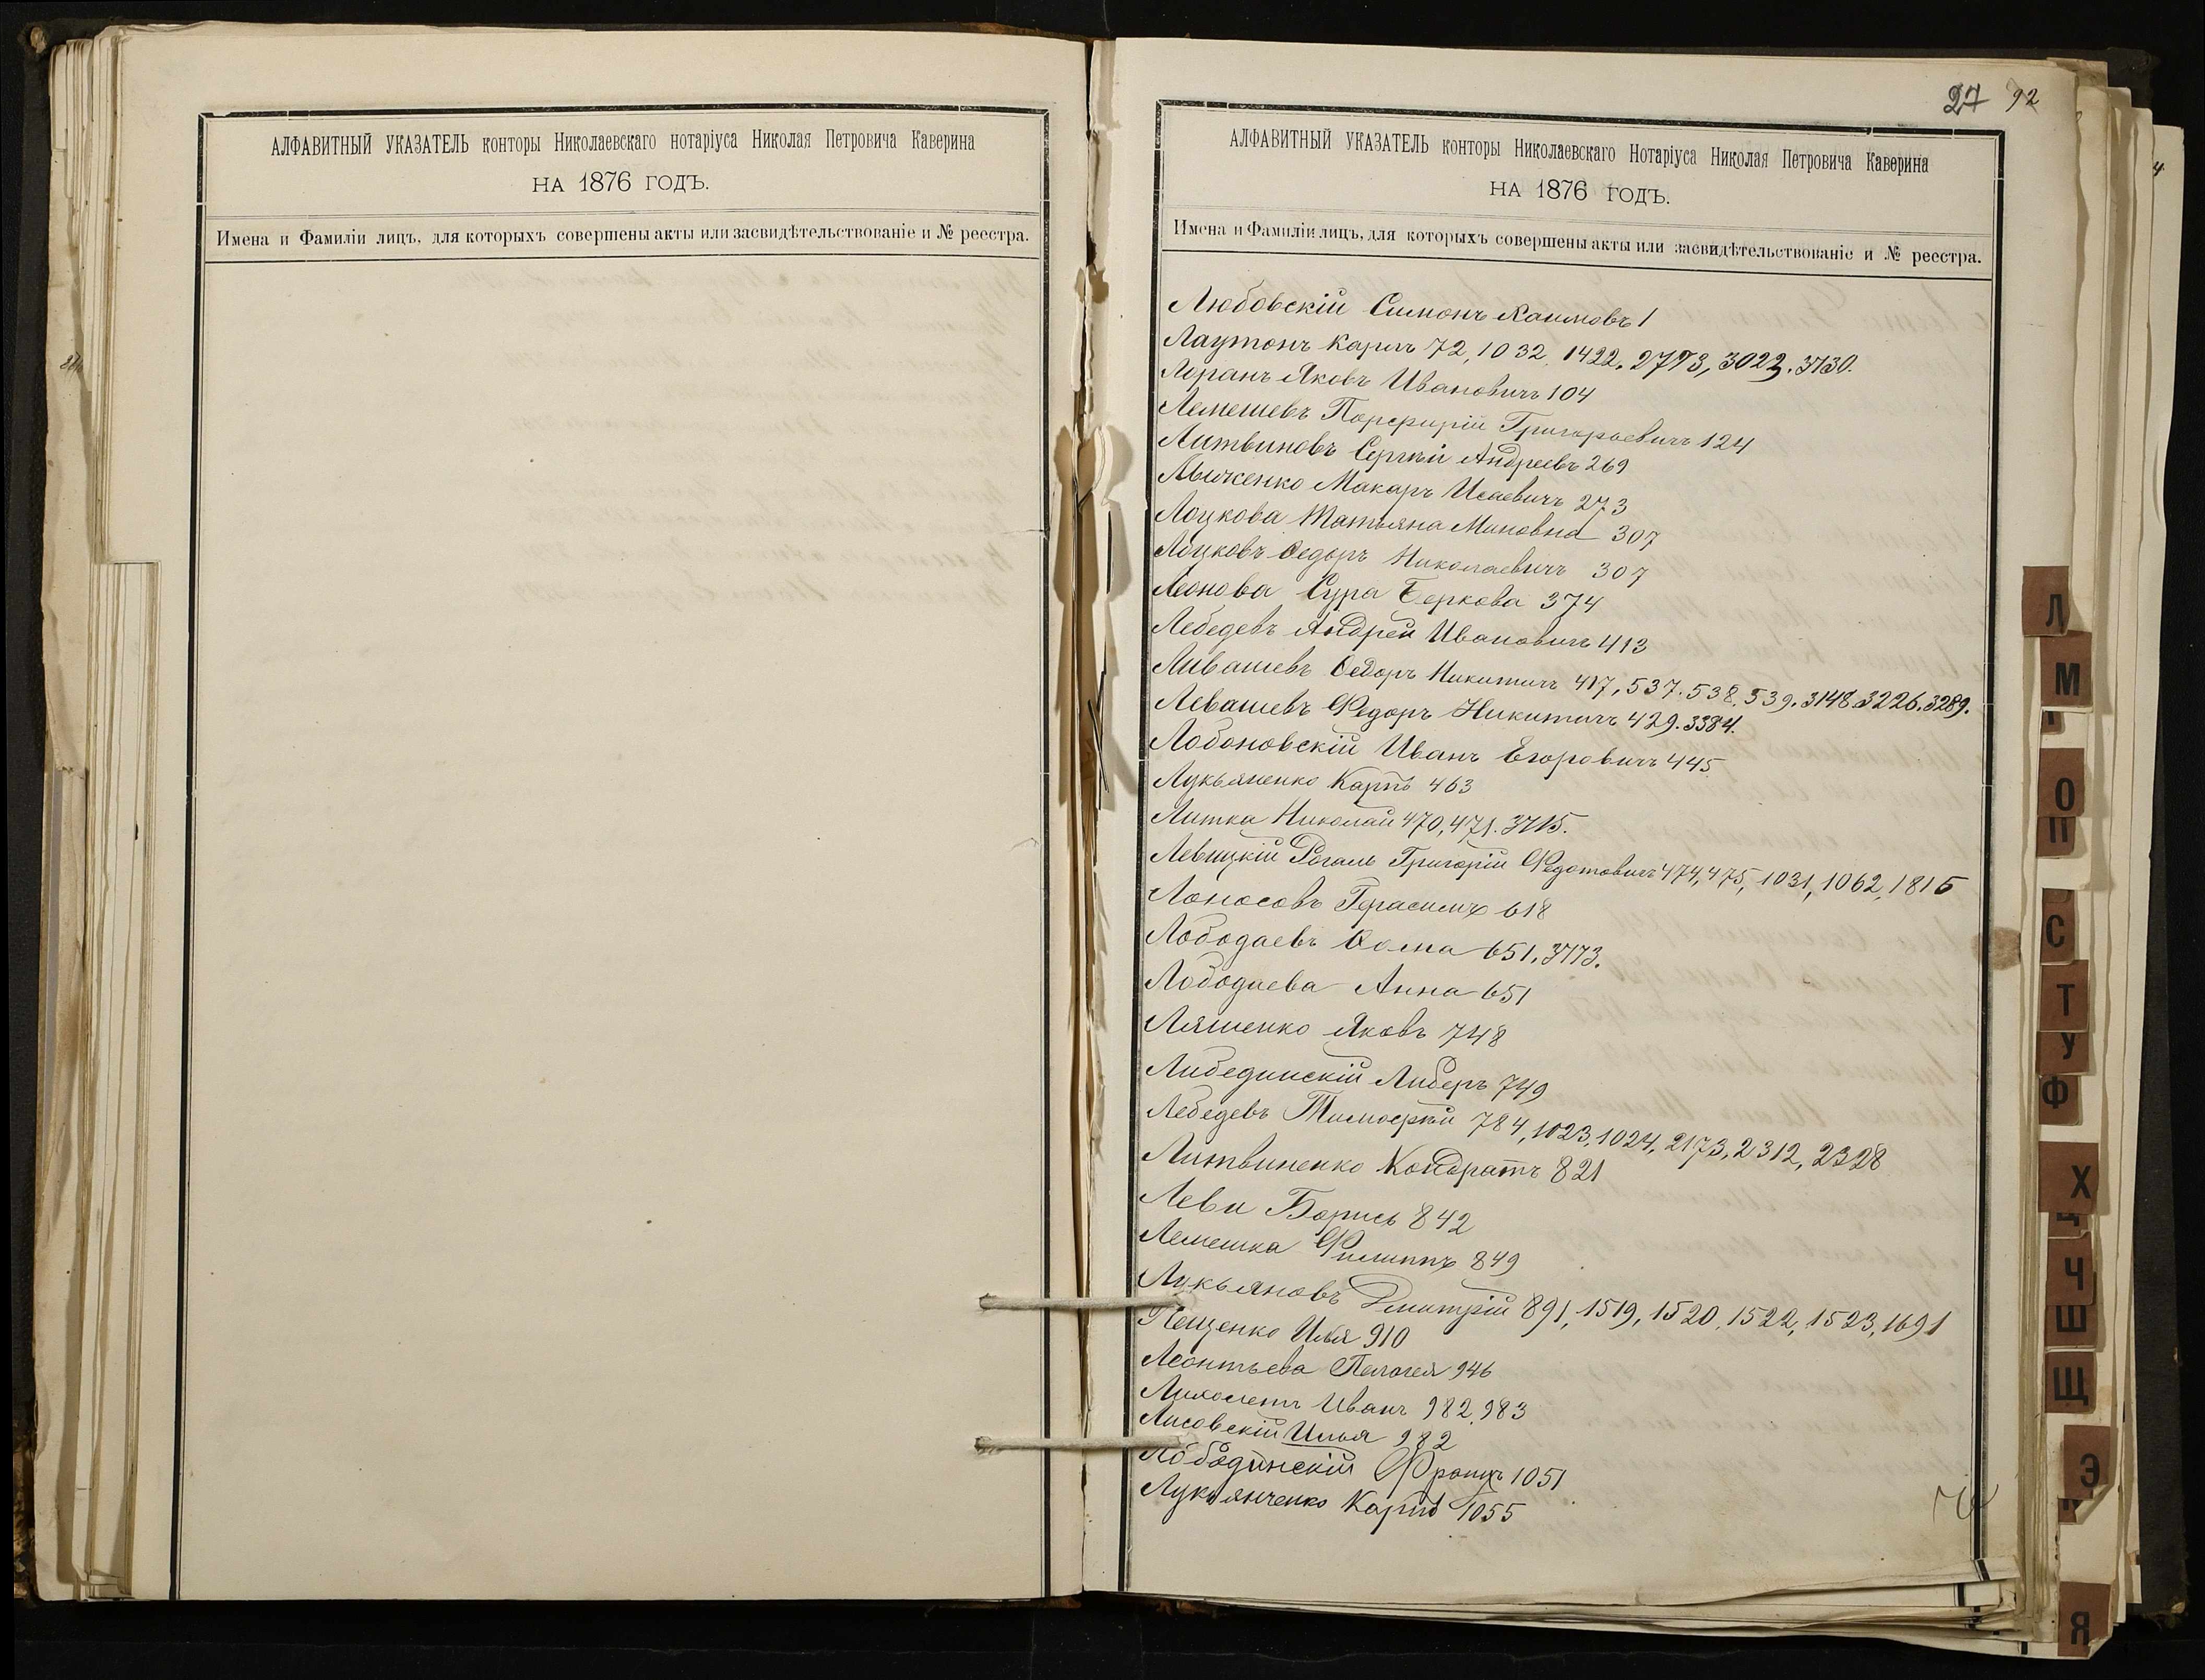 АЛФАВИТНЫЙ УКАЗАТЕЛЬ конторы Николаевскаго нотаріуса Николая Петровича Каверина
НА 1876 ГОДЪ.
Имена и Фамиліи лицъ, для которыхъ совершены акты или засвидѣтельствованіе и № реестра.
27 92
АЛФАВИТНЫЙ УКАЗАТЕЛЬ конторы Николаевскаго Нотаріуса Николая Петровича Каверина
НА 1876 ГОДЪ.
Имена и Фамиліи лицъ, для которыхъ совершены акты или засвидѣтельствованіе и № реестра.
Любовскій Симонъ Хаимовъ 1
Лаутонъ Карлъ 72, 1032, 1422, 2773, 3022, 3730.
Лоранъ Яковъ Ивановичъ 104
Лемешевъ Порфирій Григорьевичъ 124
Литвиновъ Сергѣй Андреевъ 269
Макаръ Исаевичъ 273
Лоцкова Татьяна Миновна 307
Лоцковъ Ѳедоръ Николаевичъ 307
Леонова Сура Беркова 374
Лебедевъ Андрей Ивановичъ 413
Ливашевъ Ѳедоръ Никитичъ 417, 537. 538. 539. 3148. 3226. 3289.
Левашевъ Федоръ Никитичъ 429. 3384.
Лобоновскій Иванъ Егоровичъ 445
Лукьяненко Карпъ 463
Литка Николай 470, 471. 3715.
Левицкій Рогаль Григорій Федотовичъ 474, 475, 1031, 1062, 1815
Лоносовъ Герасимъ 618
Лободаевъ Ѳома 651. 3773.
Лободаева Анна 651
Ляшенко Яковъ 748
Либединскій Либеръ 749
Лебедевъ Тимофѣй 784, 1023, 1024, 2173, 2312, 2328
Литвиненко Кондратъ 821
Леви Борисъ 842
Лемешка Филиппъ 849
Лукьяновъ Дмитрій 891, 1519, 1520, 1522, 1523, 1691
Лещенко Илья 910
Леонтьева Пелагея 946
Лихолетъ Иванъ 982, 983
Лисовскій Илья 982
Лободинскій Францъ 1051
Лукьянченко Карпъ 1055
Л
М
О
П
С
Т
У
Ф
Х
Ц
Ч
Ш
Щ
Э
Я